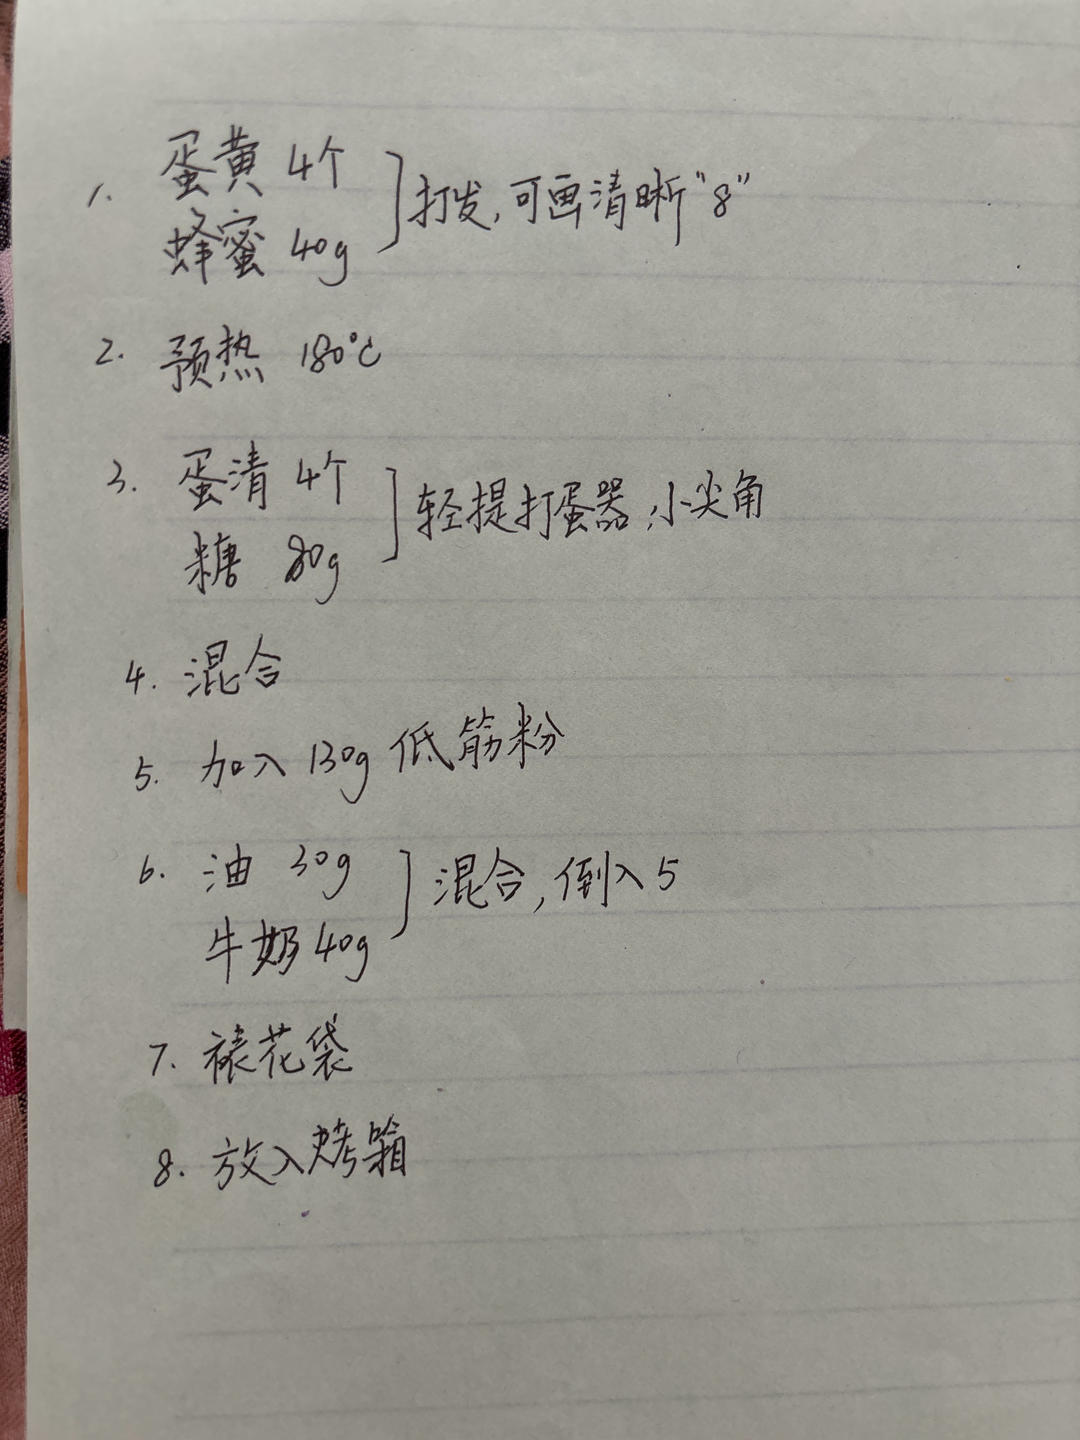 1. 蛋黄 4个
蜂蜜 40g
打发,可画清晰"8"
2. 预热 180℃
3. 蛋清 4个
糖 80g
轻提打蛋器,小尖角
4. 混合
5. 加入 130g 低筋粉
6. 油 30g
牛奶 40g
混合,倒入5
7. 裱花袋
8. 放入烤箱